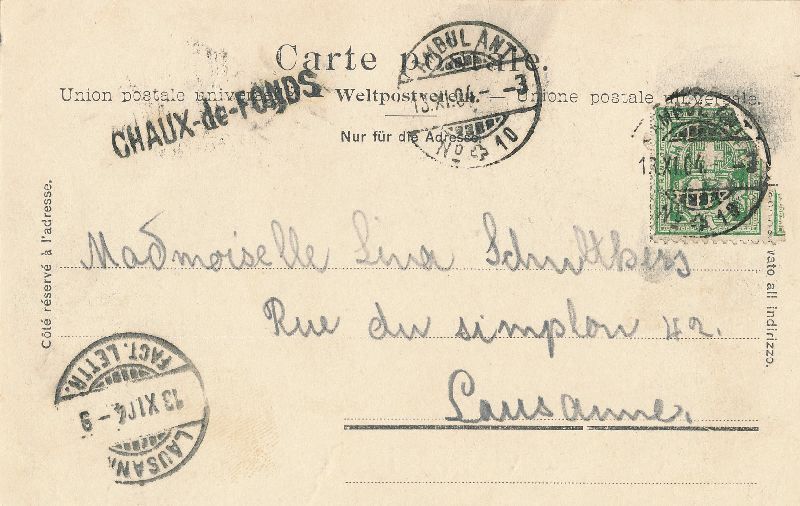 Carte postale.
Union postale universelle. — Weltpostverein. — Unione postale universale.
Nur für die Adresse.
CHAUX-de-FONDS
AMBULANT
13.XI.04.- -3
No 10
AMBULANT
13.XI.04. -3
No 10
Côté réservé à l'adresse.
vato all indirizzo.
Madmoiselle Lina Schulthess
Rue du simplon 42.
Lausanne
FACT. LETTR.
13 XI.04 - 9
LAUSANN